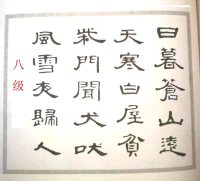 日暮蒼山遠
天寒白屋貧
柴門聞犬吠
風雪夜歸人
八级